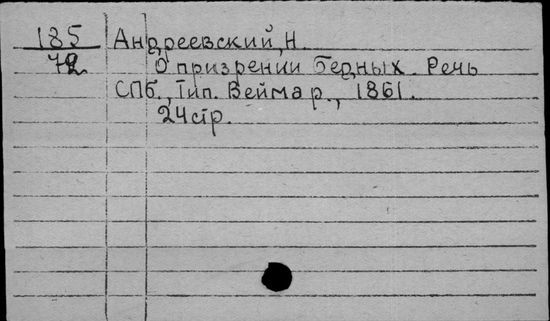 185 Андреевский, Н
72 О призрении бедных. Речь
СПб., Тип. Веймар., 1861.
24 стр.